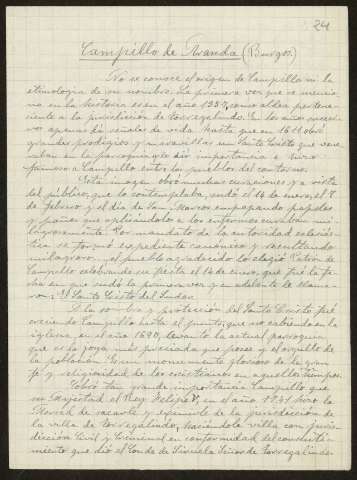 24
Campillo de Aranda (Burgos)
No se conoce el origen de Campillo ni la
etimologia de su nombre. La primera vez que se mencio
na en la historia es en el año como aldea pertene-
ciente a la jurisdiccion de Torregalindo. En los años sucesi
vos apenas da señales de vida hasta que en 1611 obró
grandes prodigios y maravillas un Santo Cristo que vene
raban en la parroquia y le dió importancia e hizo
famoso a Campillo entre los pueblos del contorno.
Esta imagen obró muchas curaciones y a vista
del público, que lo contemplaba, sudó el 14 de enero, el 7
de febrero y el dia de San Marcos empapando papeles
y paños que aplicandolo a los enfermos curaban mi
lagrosamente. Por mandato de la autoridad eclesiás-
tica se formó expediente canónico y resultando
milagroso el pueblo agradecido lo eligió Patron de
Campillo celebrando su fiesta el 14 de enero, que fué la fe
cha en que sudó la primera vez y en adelante le llama
ron: El Santo Cristo del Sudor.
A la sombra y protección del Santo Cristo fué
creciendo Campillo hasta el punto, que no cabiendo en la
iglesia, en el año 1690, levantó la actual parroquia,
que es la joya mas preciada que posee y el orgullo de
la población. Es un monumento glorioso de la gran
fe y religiosidad de los cristianos en aquellos tiempos.
Cobró tan grande importancia Campillo que
su Majestad el Rey Felipe V, en el año 1741 hizo la
Merced de sacarle y eximirle de la jurisdicción de
la villa de Torregalindo, haciéndole villa con juris-
dicción Civil y Criminal en conformidad del consenti-
miento que dió el Conde de Siruela Señor de Torregalindo